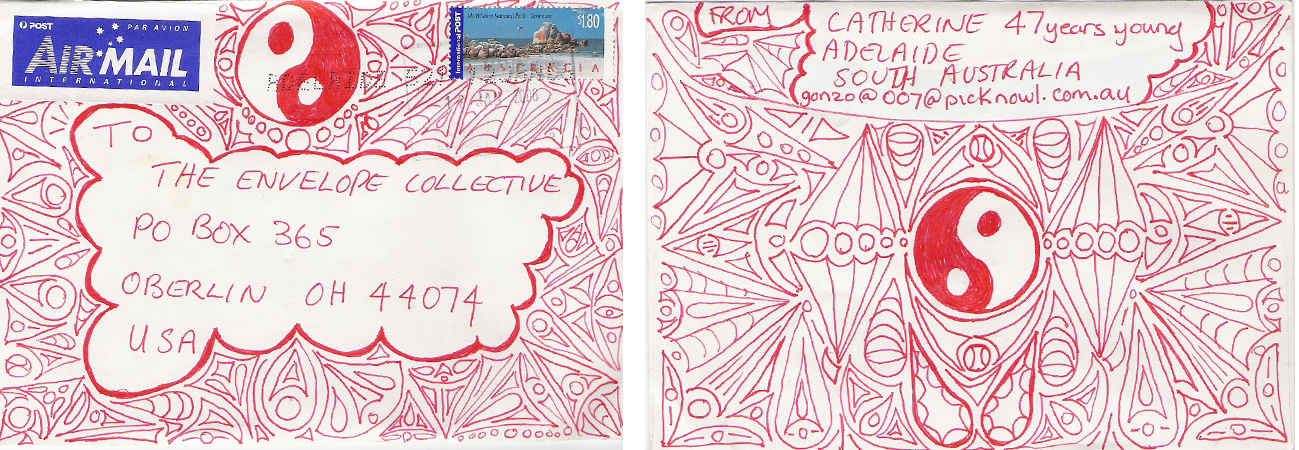 POST
PAR AVION
AIR MAIL
INTERNATIONAL
International POST
$1.80
AUSTRALIA
TO
THE ENVELOPE COLLECTIVE
PO BOX 365
OBERLIN OH 44074
USA
FROM
CATHERINE 47 years young
ADELAIDE
SOUTH AUSTRALIA
gonzo@007@picknowl.com.au